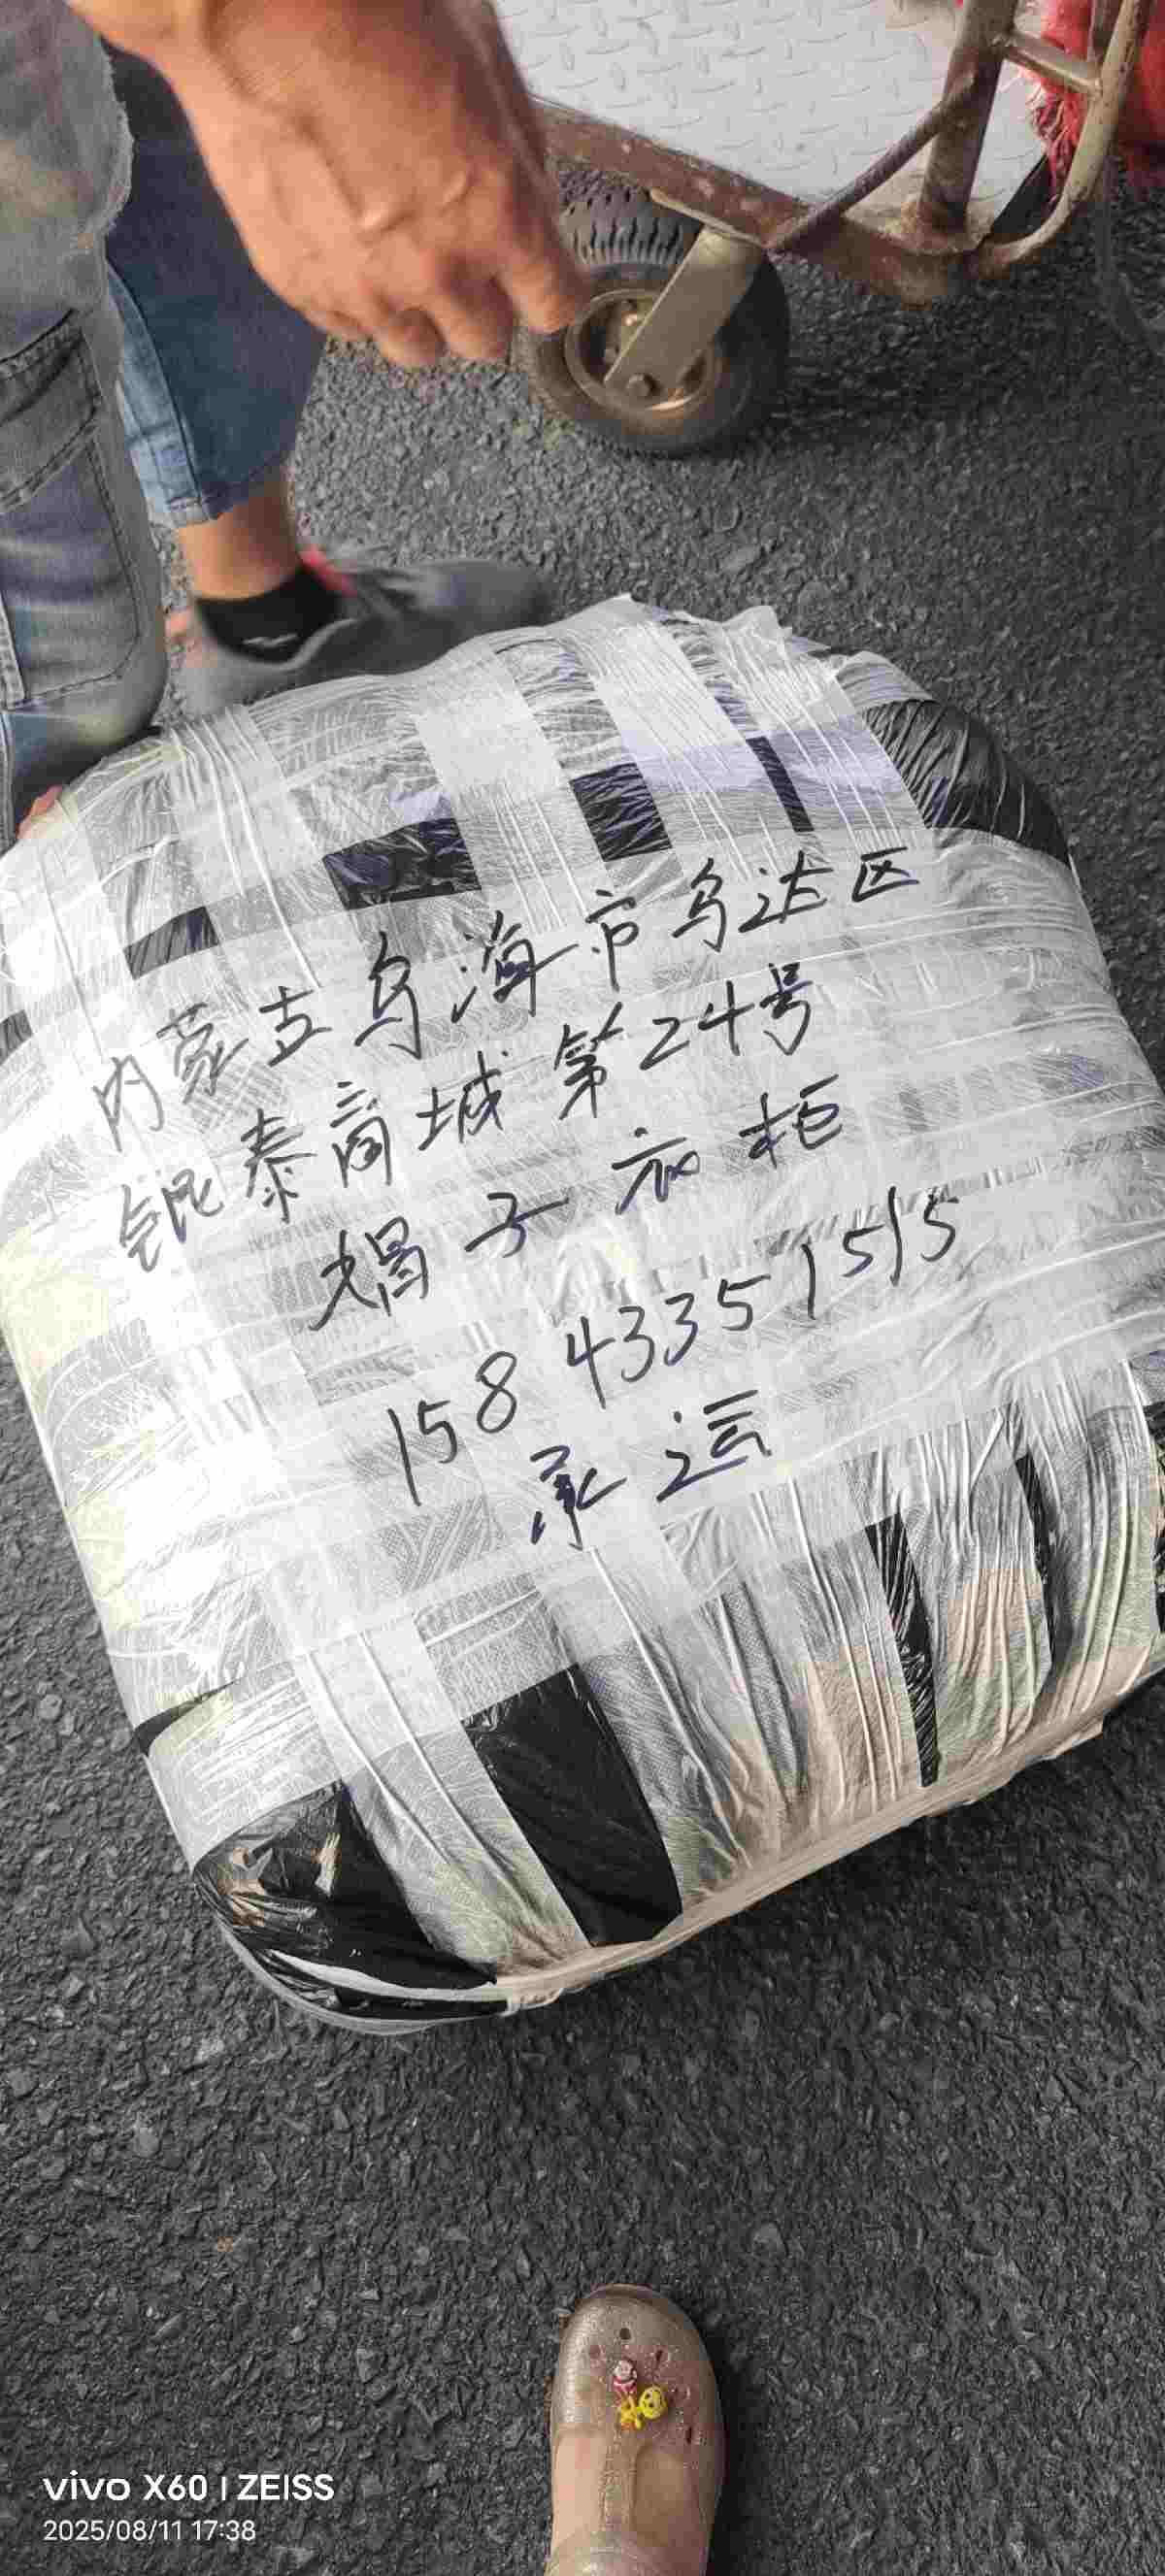 内蒙古乌海市乌达区
银泰商城第24号
媚子衣柜
158 43351515
承运
vivo X60 | ZEISS
2025/08/11 17:38